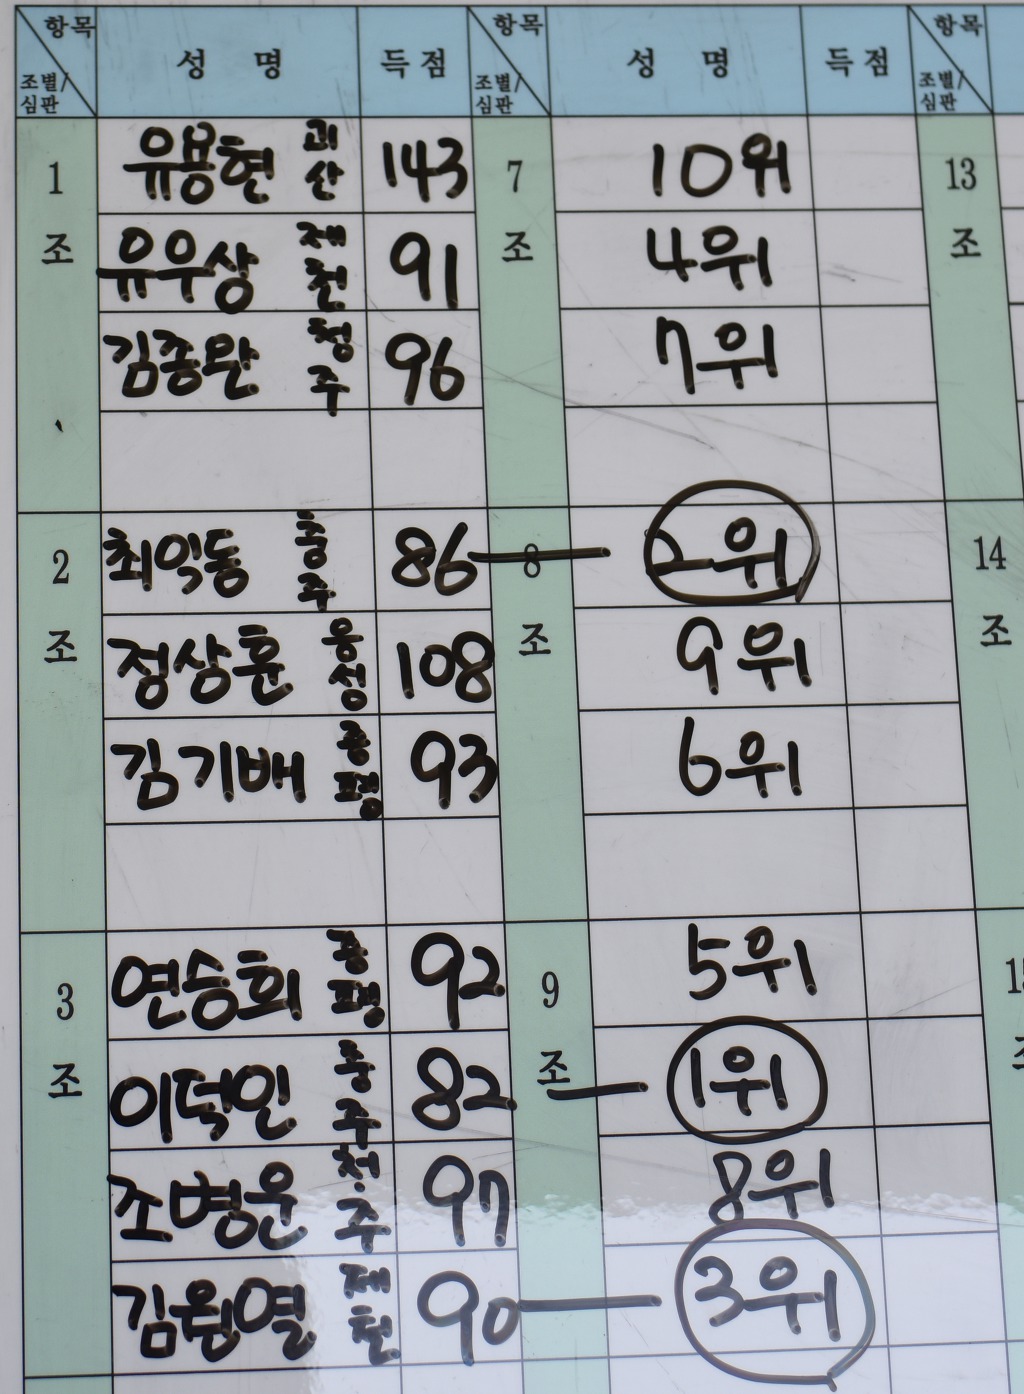 항목 성 명 득점 항목 성 명 득점 항목
조별/심판 조별/심판 조별/심판
1조 유용현 괴산 143 7조 10위 13조
유우상 제천 91 4위
김종완 청주 96 7위
2조 최익동 충주 86 8조 2위 14조
정상훈 음성 108 9위
김기배 증평 93 6위
3조 연승희 증평 92 9조 5위
이덕인 충주 82 1위
조병운 청주 97 8위
김원열 제천 90 3위